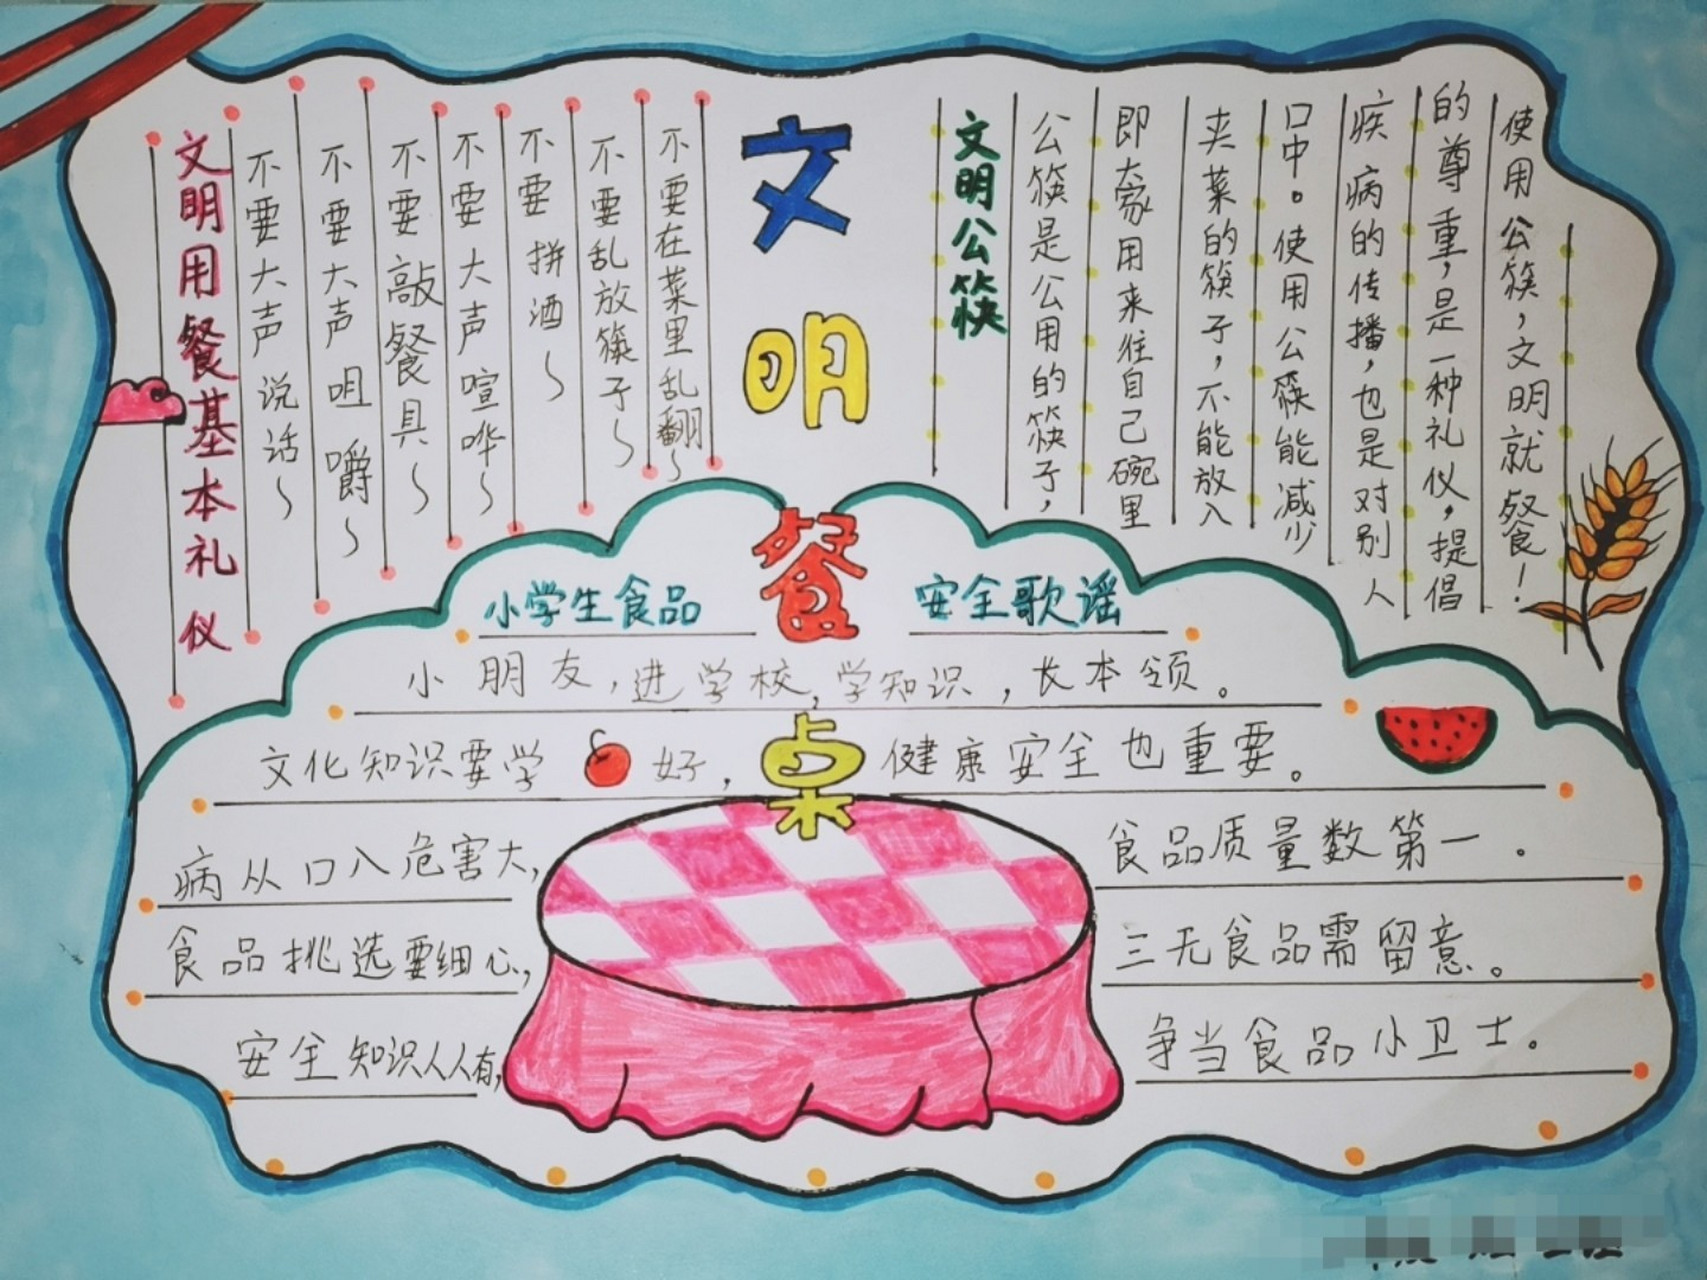 文明餐桌
文明用餐基本礼仪
不要大声说话~
不要大声咀嚼~
不要敲餐具~
不要大声喧哗~
不要拼酒~
不要乱放筷子~
不要在菜里乱翻~
文明公筷
公筷是公用的筷子,
即大家用来往自己碗里
夹菜的筷子,不能放入
口中。使用公筷能减少
疾病的传播,也是对别人
的尊重,是一种礼仪,提倡
使用公筷,文明就餐!
小学生食品 安全歌谣
小朋友,进学校,学知识,长本领。
文化知识要学好,健康安全也重要。
病从口入危害大,食品质量数第一。
食品挑选要细心,三无食品需留意。
安全知识人人有,争当食品小卫士。